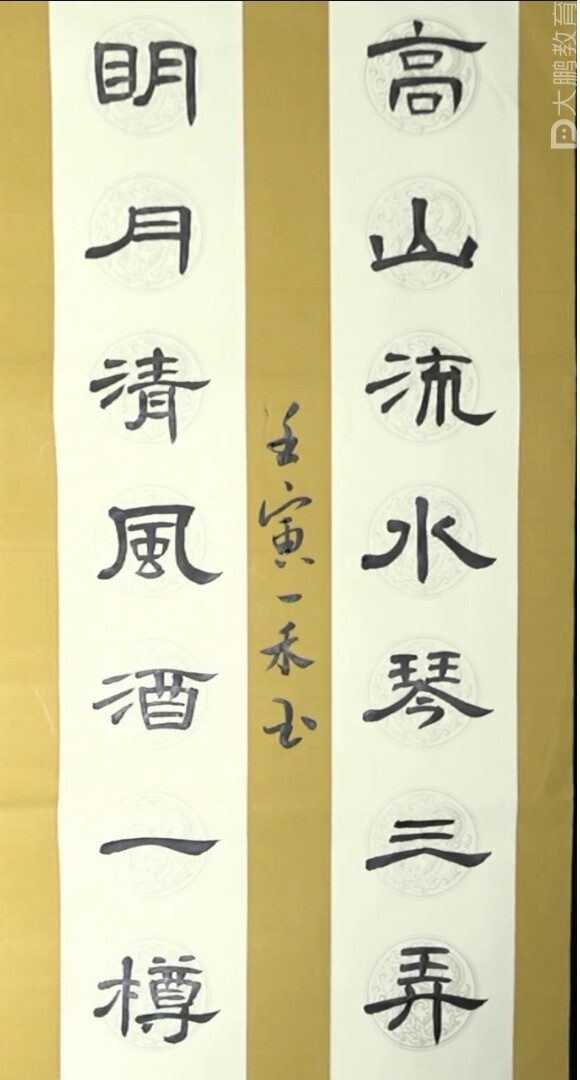 高山流水琴三弄
明月清风酒一樽
壬寅一禾书
大鹏教育